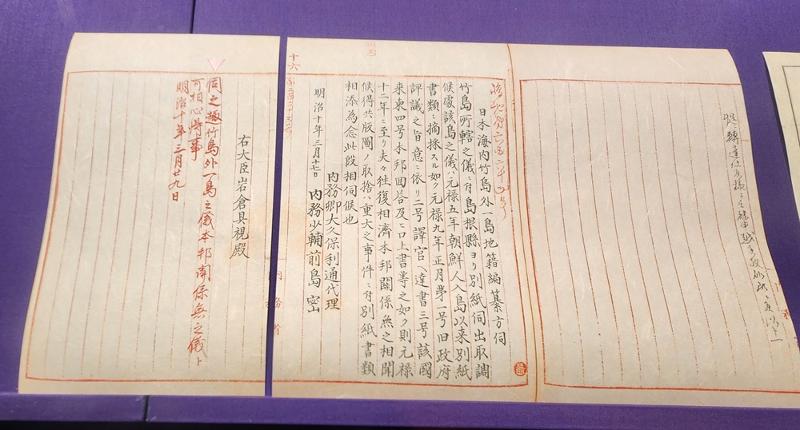 日本海内竹島外一島地籍編纂方伺
竹島所轄之儀ニ付島根縣ヨリ別紙伺出取調
候處該島之儀ハ元禄五年朝鮮人入島以来別紙
書類ニ摘採スル如ク元禄九年正月第一号旧政府
評議之旨意ニ依リ二号譯官ヘ達書三号該國
来柬四号本邦回答及ヒ口上書等之如ク則元禄
十二年ニ至リ夫々往復相濟本邦関係無之相聞
候得共版圖ノ取捨ハ重大之事件ニ付別紙書類
相添為念此段相伺候也
明治十年三月十七日
内務卿大久保利通代理
内務少輔前島密
右大臣岩倉具視殿
伺之趣竹島外一島之儀本邦関係無之儀ト
可相心得事
明治十年三月廿九日
内務省